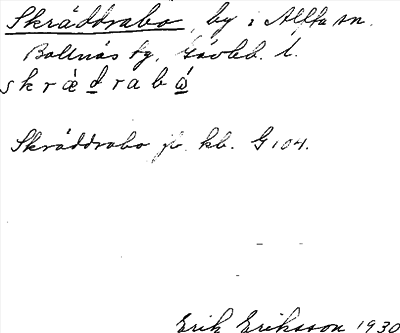 Skräddrabo, by i Alfta sn.
Bollnäs tg, Gävleb. l.
skrædrabω
Skräddrabo jb. kb. G 104.
Erik Eriksson 1930